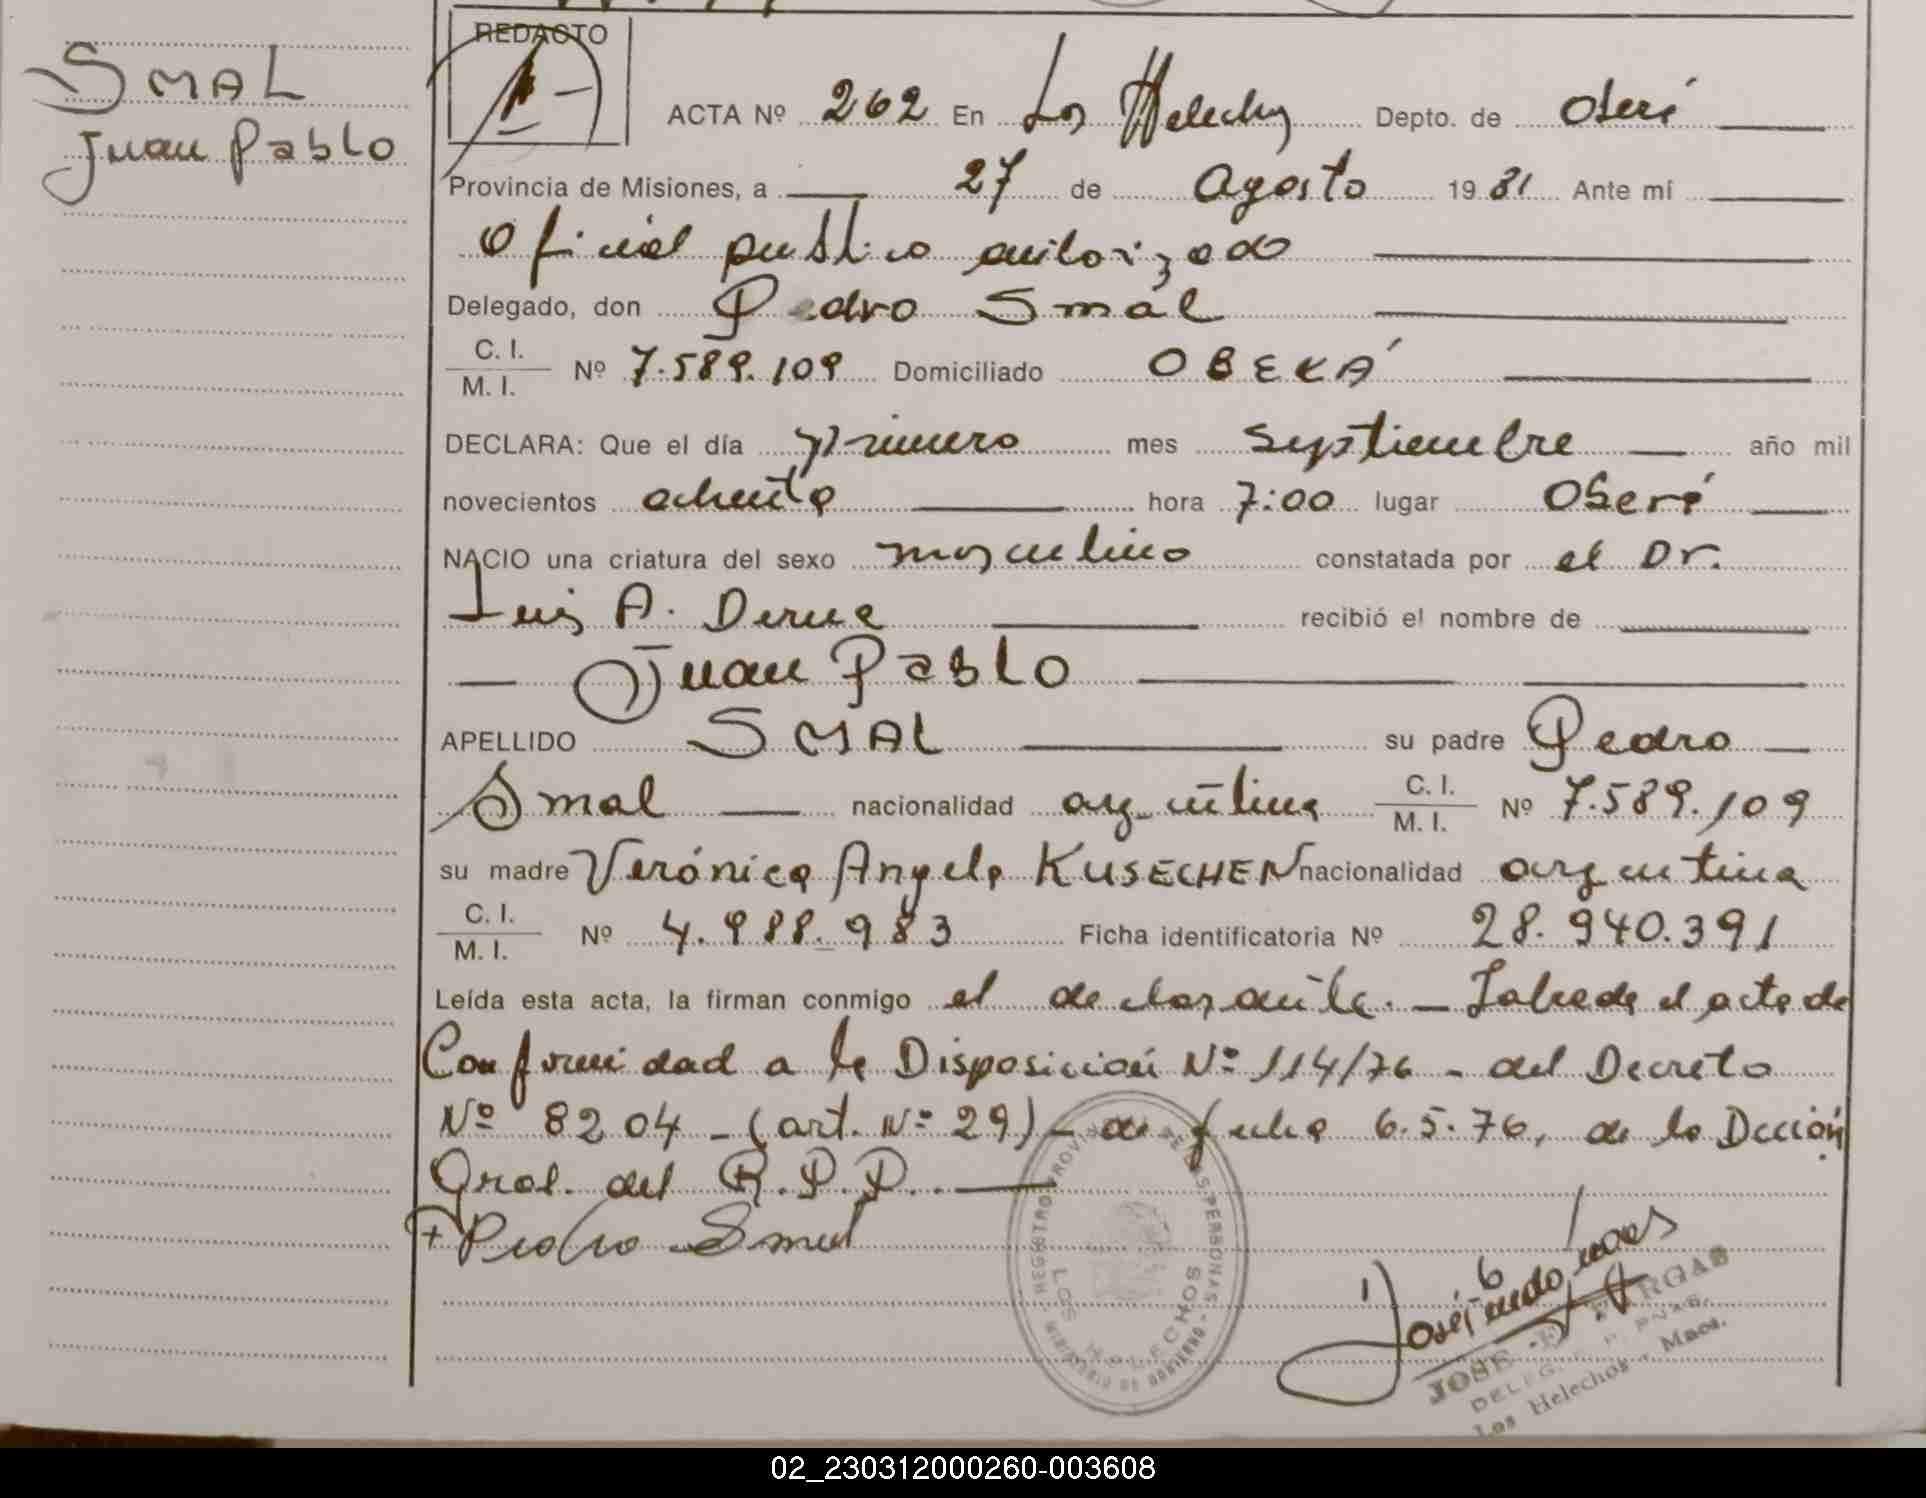 SMAL
Juan Pablo
REDACTO
ACTA Nº 262 En Los Helechos Depto. de Oberá
Provincia de Misiones, a 27 de Agosto 1981 Ante mí
Oficial publico autorizado
Delegado, don Pedro Smal
C. I.
M. I. Nº 7.589.109 Domiciliado OBERÁ
DECLARA: Que el día primero mes Septiembre año mil
novecientos ochenta hora 7:00 lugar Oberá
NACIO una criatura del sexo masculino constatada por el Dr.
Luis A. Derna recibió el nombre de
Juan Pablo
APELLIDO SMAL su padre Pedro
Smal nacionalidad argentina C. I.
M. I. Nº 7.589.109
su madre Verónica Angela KUSECHEN nacionalidad argentina
C. I.
M. I. Nº 4.988.983 Ficha identificatoria Nº 28.940.391
Leída esta acta, la firman conmigo el declarante. - Labrada el acta de
Conformidad a la Disposición Nº 114/76 - del Decreto
Nº 8204 - (art. Nº 29) - de fecha 6.5.76, de la Dcción
Gral. del R.P.P.
+ Pedro Smal
REGISTRO PROVINCIAL DE LAS PERSONAS
LOS HELECHOS
MINISTERIO DE GOBIERNO
JOSE E. VARGAS
Los Helechos - Mnes.
02_230312000260-003608